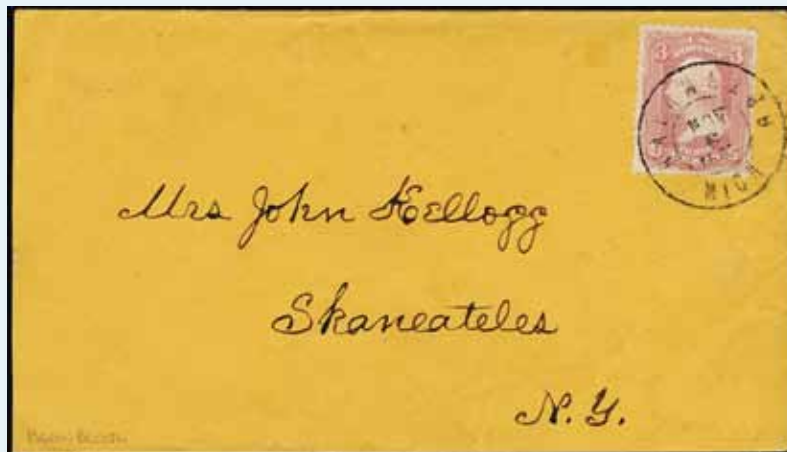 3 3
NOV
MICH
Mrs John Kellogg
Skaneateles
N.Y.